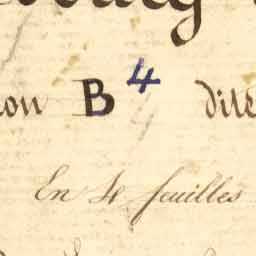 on B 4 dite
En 4 feuilles